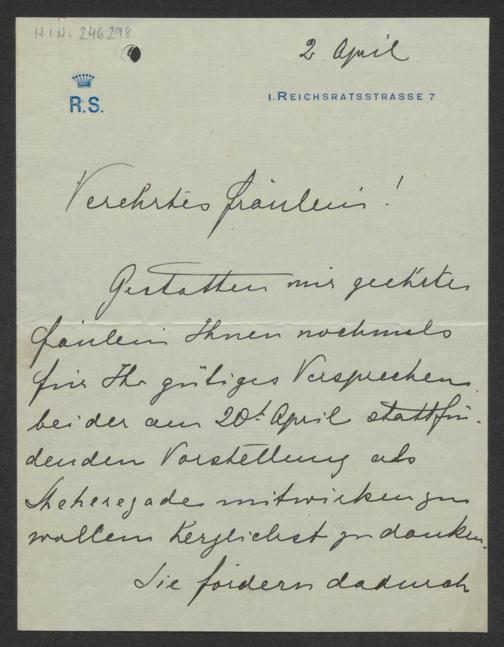 H.I.N. 246298
2 April
R.S.
I. REICHSRATSSTRASSE 7
Verehrtes Fräulein!
Gestatten mir geehrtes
Fräulein Ihnen nochmals
für Ihr gütiges Versprechen
bei der am 20t April stattfin-
denden Vorstellung als
Sheherezade mitwirken zu
wollen herzlichst zu danken.
Sie fördern dadurch